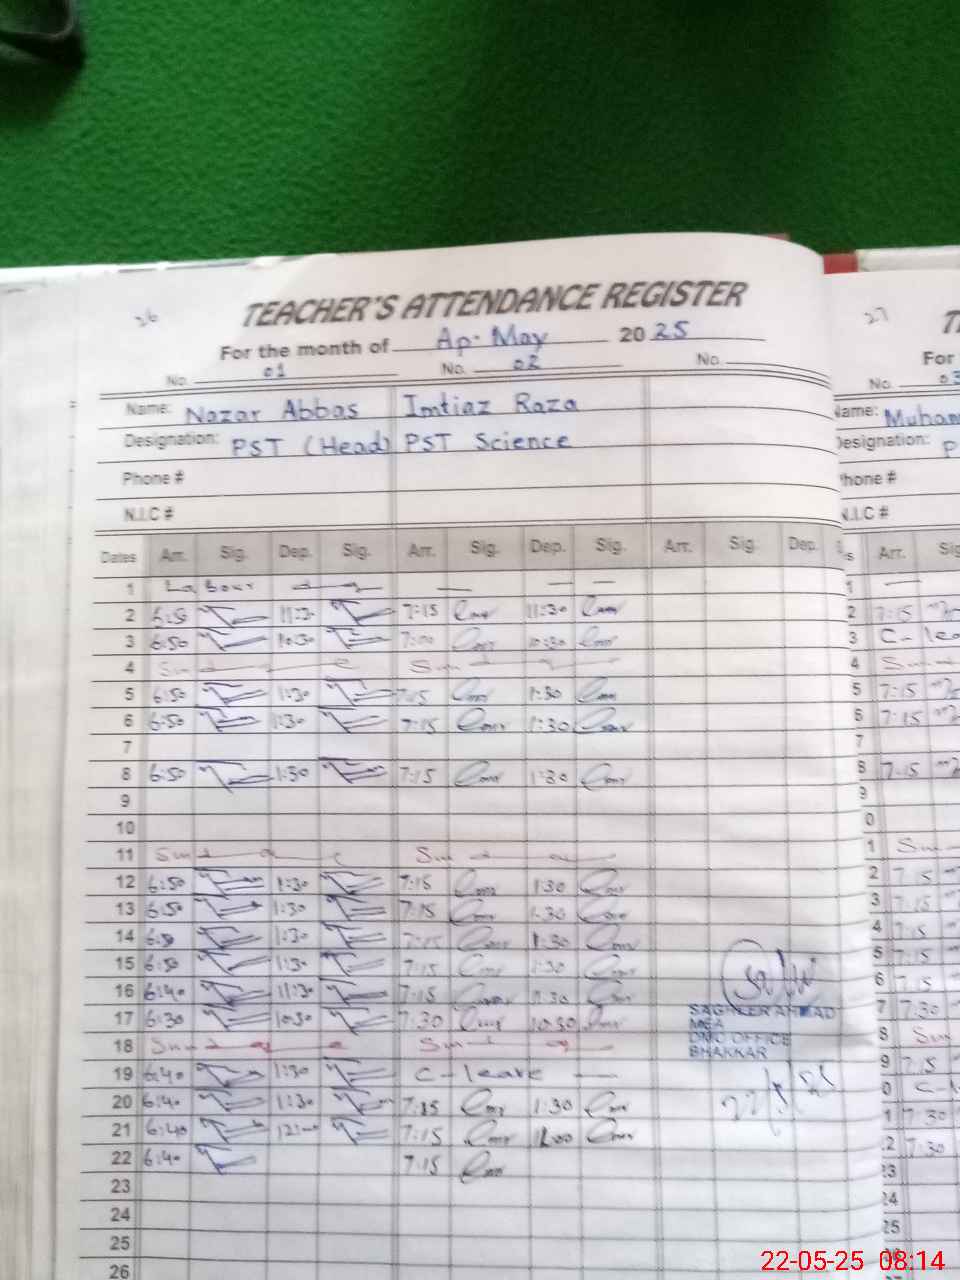 26
TEACHER'S ATTENDANCE REGISTER
For the month of Ap- May 2025
No. 01 No. 02 No.
Name: Nazar Abbas Imtiaz Raza
Designation: PST (Head) PST Science
Phone #
N.I.C #
Dates Arr. Sig. Dep. Sig. Arr. Sig. Dep. Sig. Arr. Sig. Dep.
1 Labour day
2 6:50 11:30 7:15 11:30
3 6:50 10:30 7:00 10:30
4 Sunday Sunday
5 6:50 1:30 7:15 1:30
6 6:50 1:30 7:15 1:30
7
8 6:50 1:30 7:15 1:30
9
10
11 Sunday Sunday
12 6:50 1:30 7:15 1:30
13 6:50 1:30 7:15 1:30
14 6:50 1:30 7:15 1:30
15 6:50 1:30 7:15 1:30
16 6:40 11:30 7:15 11:30
17 6:30 10:30 7:30 10:30
18 Sunday Sunday
19 6:40 1:30 C-leave
20 6:40 1:30 7:15 1:30
21 6:40 12:00 7:15
22 6:40 7:15
23
24
25
26
SAGHEER AHMAD
MEA
DMO OFFICE
BHAKKAR
22/5/25
27
T
For
No. 03
Name: Muham
Designation: P
Phone #
N.I.C #
Arr. Sig
1
2 7:15
3 C-lea
4 Sun
5 7:15
6 7:15
7
8 7:15
9
0
1 Sun
2 7:15
3 7:15
4 7:15
5 7:15
6 7:15
7 7:30
8 Sun
9 7:15
0 C-l
1 7:30
2 7:30
23
24
25
22-05-25 08:14